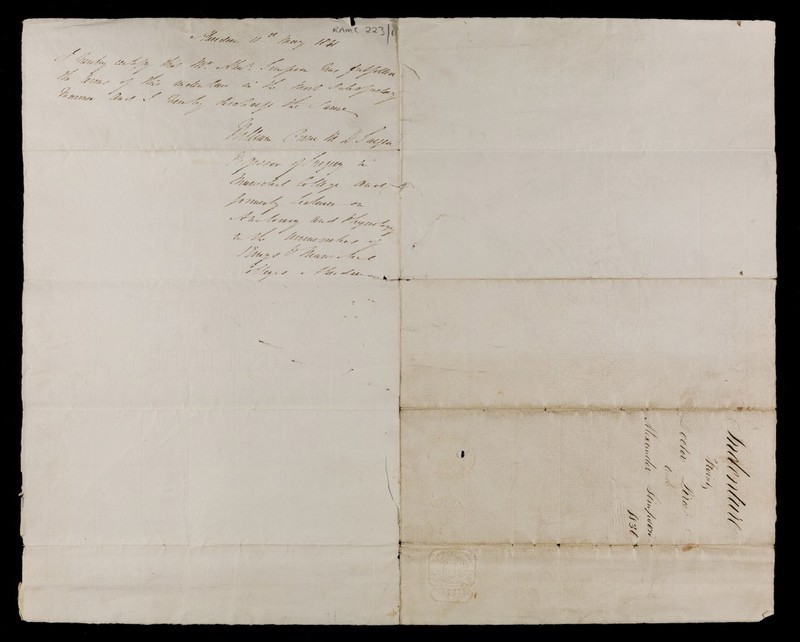 RAMC 223/1
Aberdeen 11th May 1841
I hereby certify that Mr Alexr Simpson has fulfilled
the terms of this indenture in the most satisfactory
manner and I hereby discharge the same
William M. D. Surgeon
Professor of Surgery in
Marischal College and
formerly Lecturer on
Anatomy and Physiology
in the Universities of
Kings & Marischal
Colleges Aberdeen
Indenture
Twixt
Doctor
&
Alexander Simpson